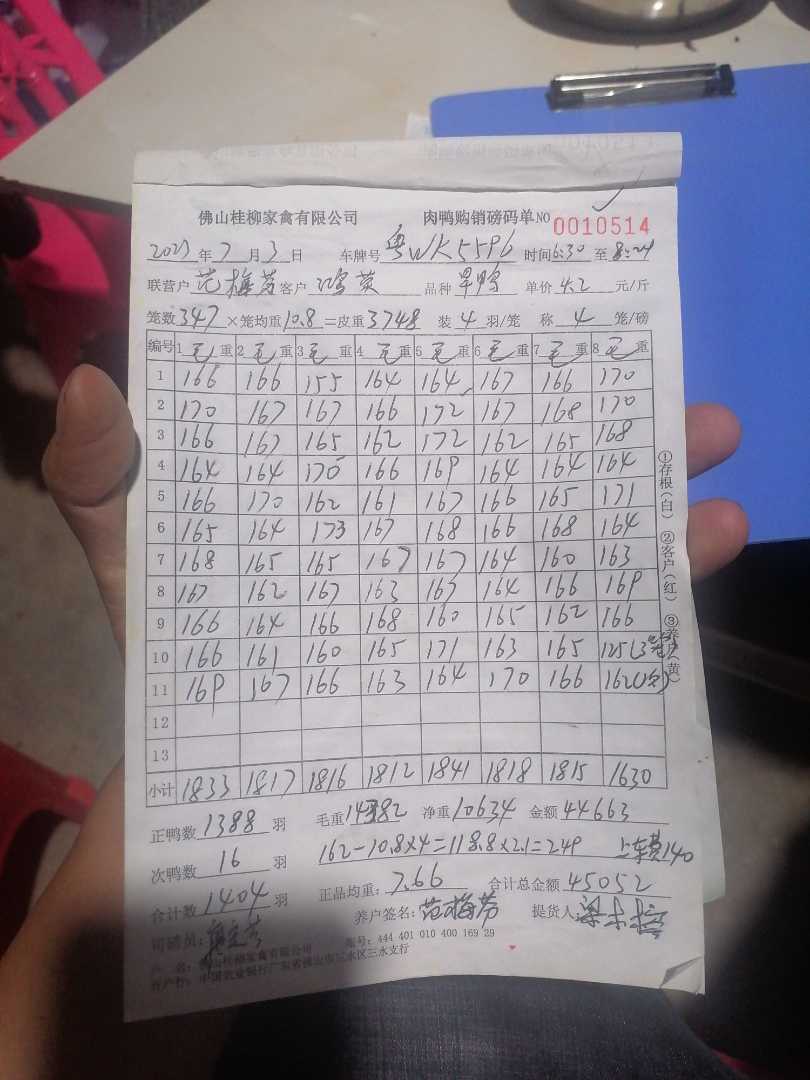 佛山桂柳家禽有限公司 肉鸭购销磅码单 NO 0010514
2023 年 7 月 3 日 车牌号 粤WK5596 时间 6:30 至 8:24
联营户 范梅芳 客户 鸿英 品种 旱鸭 单价 4.2 元/斤
笼数 347 ×笼均重 10.8 =皮重 3748 装 4 羽/笼 称 4 笼/磅
编号 1 毛 重 2 毛 重 3 毛 重 4 毛 重 5 毛 重 6 毛 重 7 毛 重 8 毛 重
1 166 166 155 164 164 167 166 170
2 170 167 167 166 172 167 168 170
3 166 167 165 162 172 162 165 168
4 164 164 170 166 169 164 164 164
5 166 170 162 161 167 166 165 171
6 165 164 173 167 168 166 168 164
7 168 165 165 167 167 164 160 163
8 167 162 167 163 167 164 166 169
9 166 164 166 168 160 165 162 166
10 166 161 160 165 171 163 165 125(3笼)
11 169 167 166 163 164 170 166 162(次)
12
13
小计 1833 1817 1816 1812 1841 1818 1815 1630
①存根(白) ②客户(红) ③养户(黄)
正鸭数 1388 羽 毛重 14382 净重 10634 金额 44663
次鸭数 16 羽 162-10.8×4=118.8×2.1=249 上车费140
合计数 1404 羽 正品均重: 7.66 合计总金额 45052
司磅员: 养户签名: 范梅芳 提货人
户 名: 佛山桂柳家禽有限公司 账号: 444 401 010 400 169 29
开户行: 中国农业银行广东省佛山市三水区三水支行